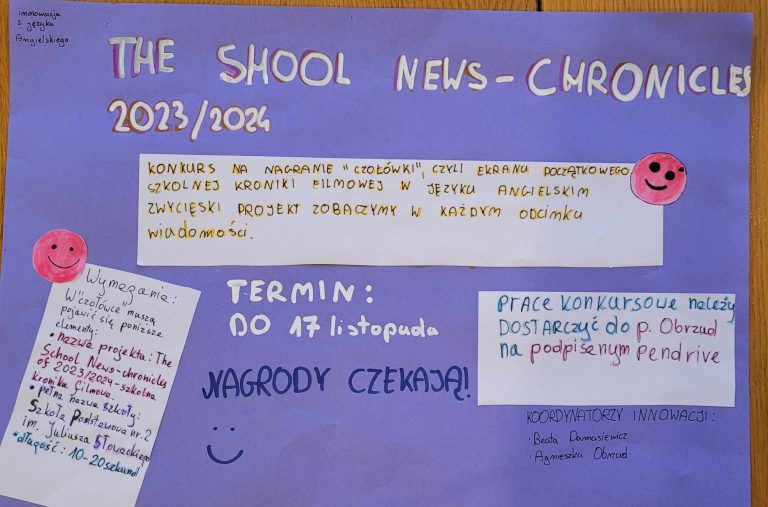 innowacja
z języka
Angielskiego
THE SHOOL NEWS-CHRONICLES
2023/2024
KONKURS NA NAGRANIE "CZOŁÓWKI", CZYLI EKRANU POCZĄTKOWEGO
SZKOLNEJ KRONIKI FILMOWEJ W JĘZYKU ANGIELSKIM
ZWYCIĘSKI PROJEKT ZOBACZYMY W KAŻDYM ODCINKU
wiadomości.
Wymagania:
W "czołówce" muszą
pojawić się poniższe
elementy:
• nazwa projektu: The
School News-chronicles
of 2023/2024-szkolna
kronika filmowa.
• pełna nazwa szkoły:
Szkoła Podstawowa nr. 2
im. Juliusza Słowackiego
• długość: 10-20 sekund
TERMIN:
DO 17 listopada
NAGRODY CZEKAJĄ!
PRACE KONKURSOWE należy
DOSTARCZYĆ do p. Obrzud
na podpisanym pendrive
KOORDYNATORZY INNOWACJI:
· Beata Damasiewicz
· Agnieszka Obrzud